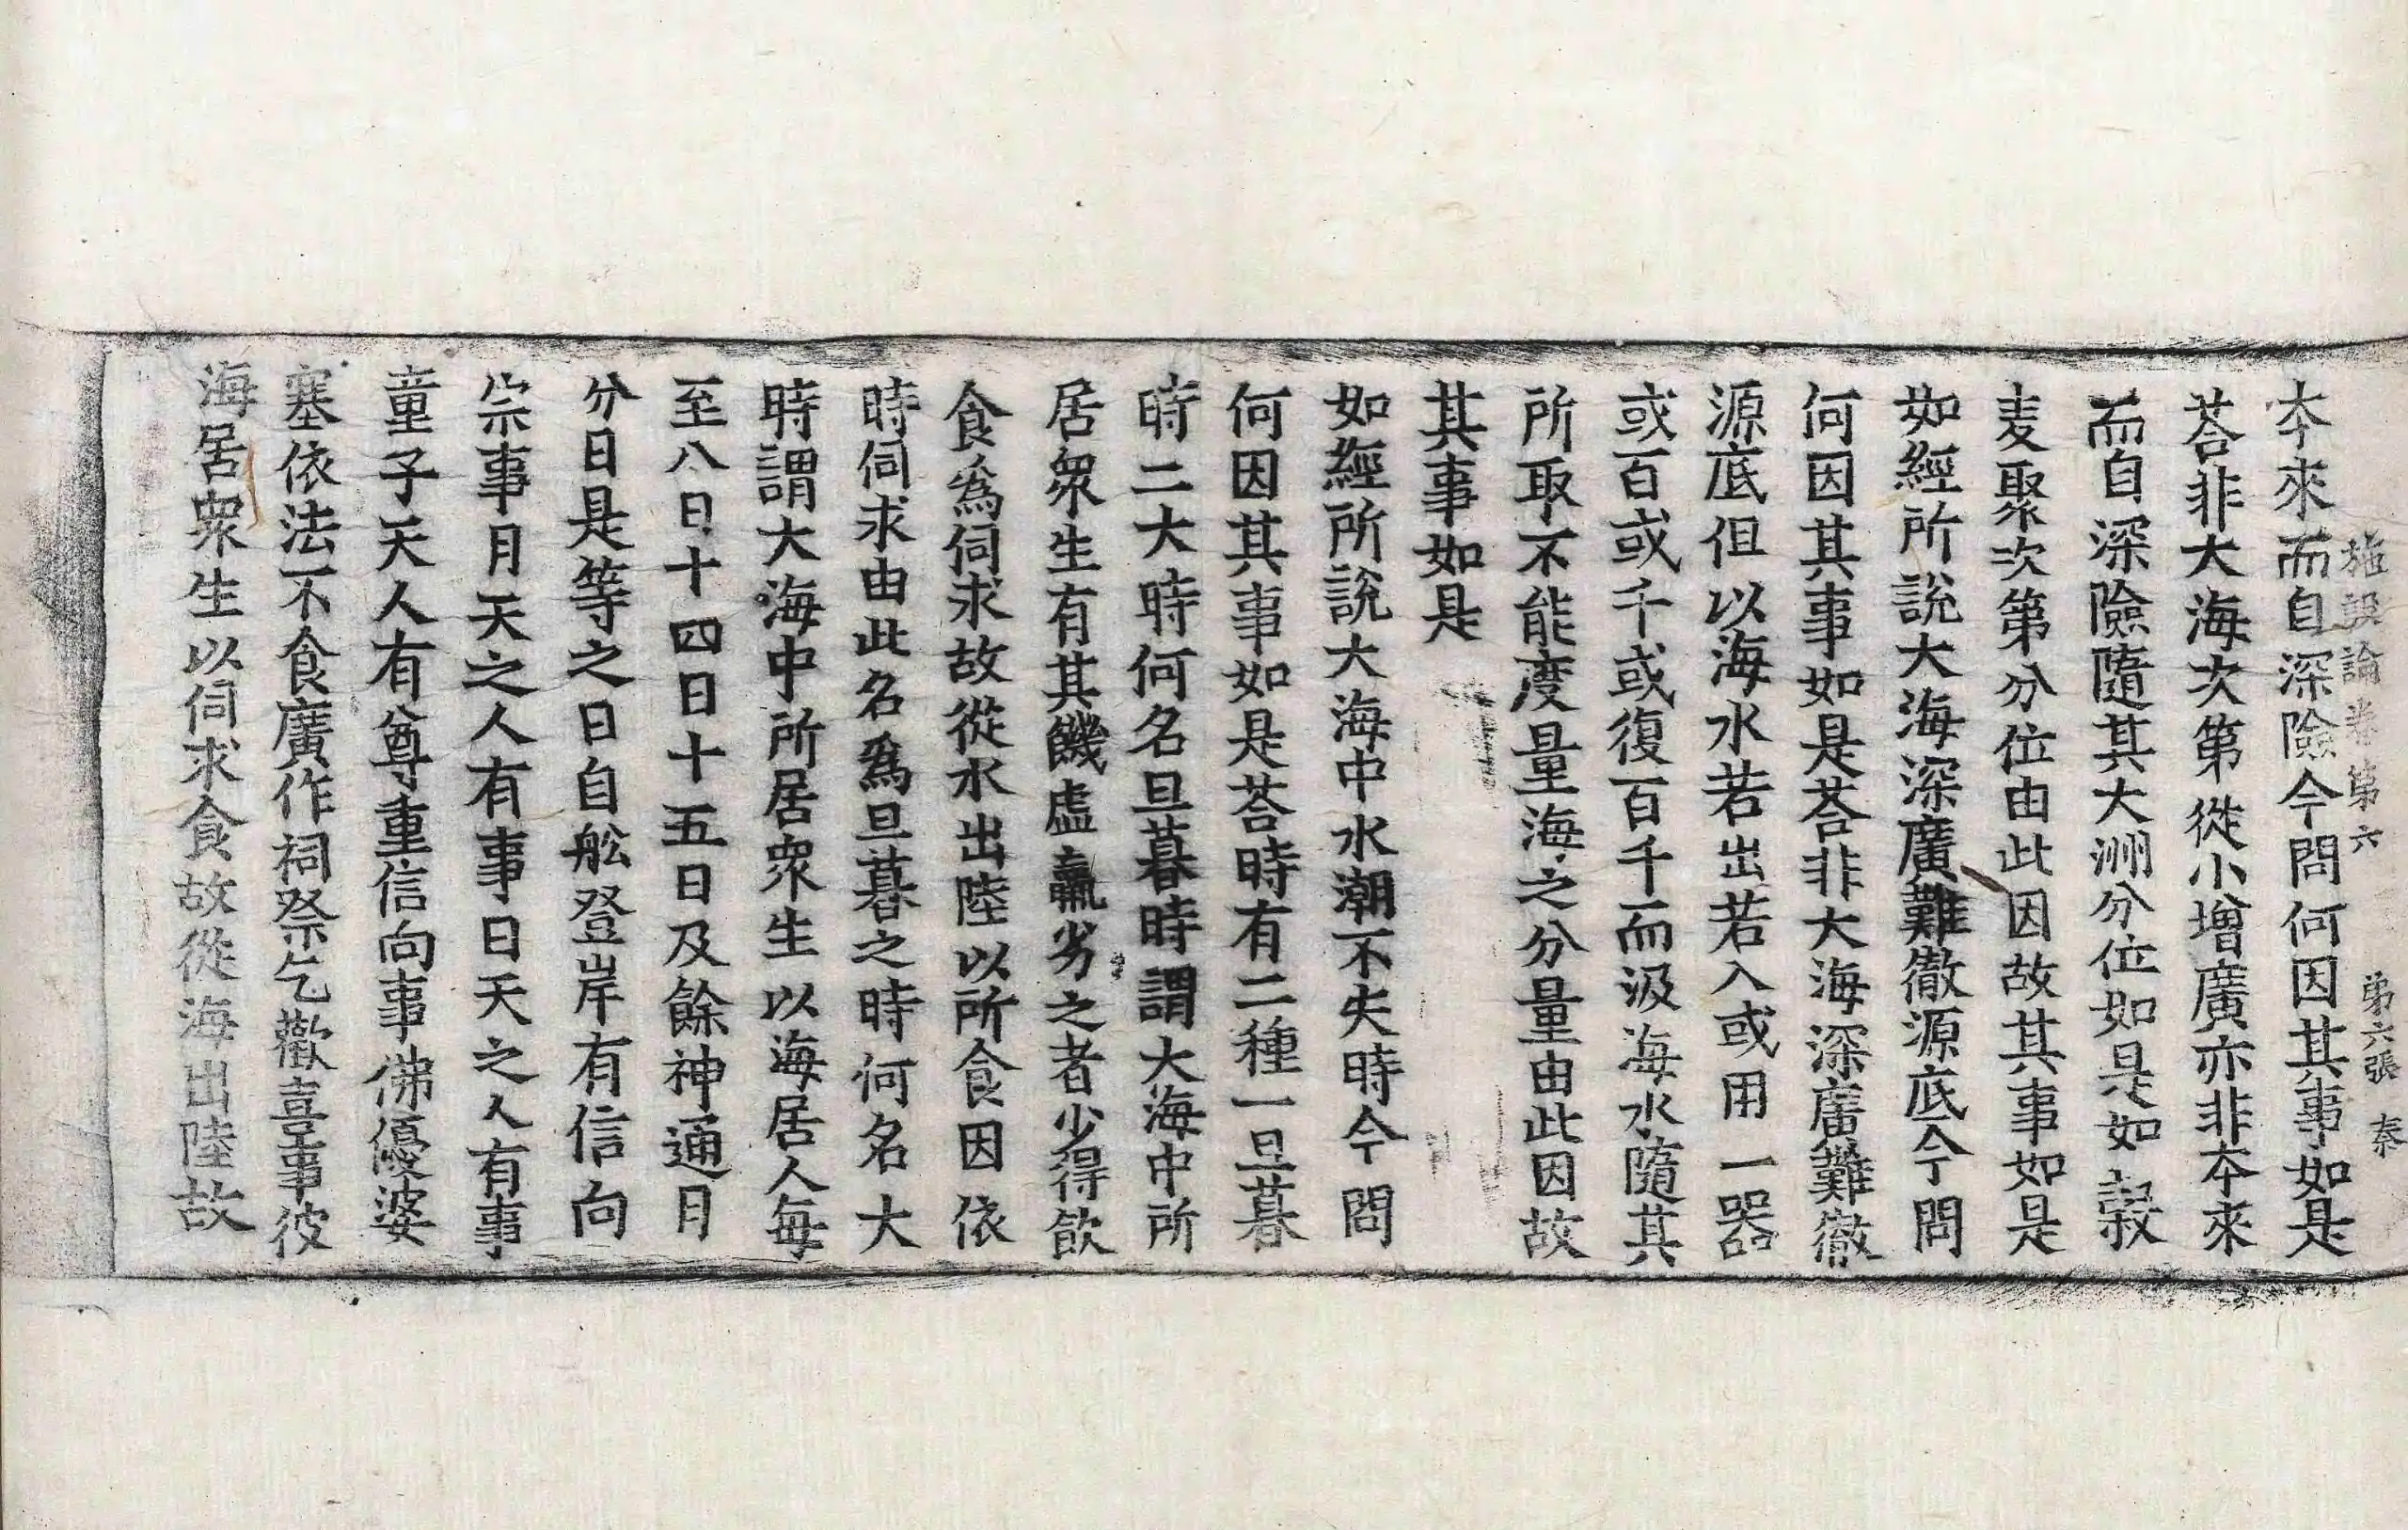 施設論卷第六　第六張　秦
夲來而自深險今問何因其事如是
荅非大海次第從小增廣亦非夲來
而自深險隨其大洲分位如是如穀
麦聚次第分位由此因故其事如是
如經所說大海深廣難徹源底今問
何因其事如是荅非大海深廣難徹
源底但以海水若出若入或用一器
或百或千或復百千而汲海水隨其
所取不能度量海之分量由此因故
其事如是
如經所說大海中水潮不失時今問
何因其事如是荅時有二種一旦暮
時二大時何名旦暮時謂大海中所
居衆生有其饑虛羸劣之者少得飲
食爲伺求故從水出陸以所食因依
時伺求由此名爲旦暮之時何名大
時謂大海中所居衆生以海居人每
至八日十四日十五日及餘神通月
分日是等之日自舩登岸有信向
宗事月天之人有事日天之人有事
童子天人有尊重信向事佛優婆
塞依法不食廣作祠祭乞歡喜事彼
海居衆生以伺求食故從海出陸故